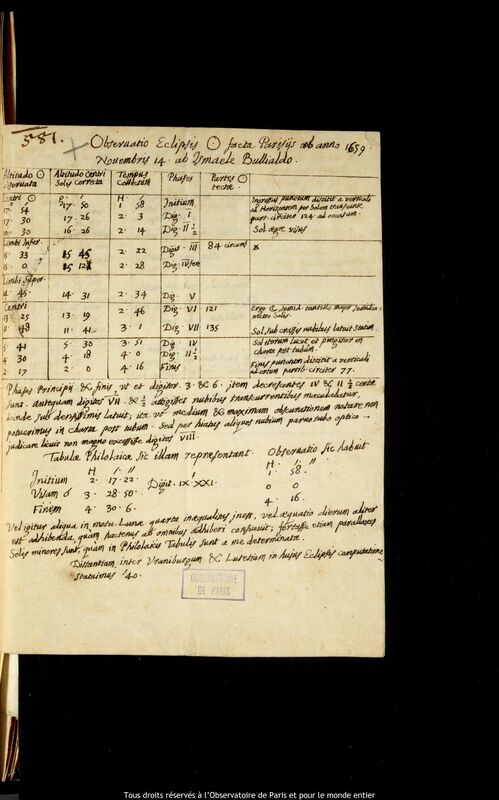 581.
Observatio Eclipsis ☉ factæ Parisijs anno 1659
Novembris 14. ab Ismaele Bullialdo.
Altitudo ☉ observata | Altitudo Centri Solis Correcta | Tempus Collectum | Phases | Partes ☉ tectæ
Centri ☉ | ° ′ | H ′
54 | 17 · 50 | 1 · 58 | Initium | Ingressus punctum distitit a verticali ad Horizontem per Solem transeunte part. circiter 124 ad occasum.
17 · 30 | 17 · 26 | 2 · 3 | Dig. I
30 | 16 · 26 | 2 · 14 | Dig. II ½ | Sol ægre visus
Limbi Infer.
33 | 15 45 | 2 · 22 | Digit. III | 84 circiter
0 | 15 12 | 2 · 28 | Dig. IV fere
Limbi Super.
45 | 14 · 31 | 2 · 34 | Dig. V
Centri
25 | 13 · 19 | 2 · 46 | Dig. VI | 121 | Ergo ☾ semid. tantillo major semidiametro Solis.
48 | 11 · 41 | 3 · 1 | Dig. VII | 135 | Sol sub crassis nubibus latuit statim.
41 | 5 · 30 | 3 · 51 | Dig. IV | Sol iterum lucet et pingitur in charta post tubum.
30 | 4 · 18 | 4 · 0 | Dig. II ½
17 | 2 · 0 | 4 · 16 | Finis | Finis punctum distitit a verticali ad ortum partib. circiter 77.
Phases Principij & finis, ut et digitor. 3 & 6. item decrescentes IV & II ½ certæ
sunt. antequam digitos VII. & ½ attigisset nubibus transcurrentibus maculabatur,
deinde sub densissimis latuit; ita ut medium & maximam obscurationem notare non
potuerimus in charta post tubum. Sed per hiatus aliquos nubium parvo tubo optico
judicare licuit non magno excessisse digitos VIII.
Tabulæ Philolaicæ sic illam repræsentant. Observatio sic habuit
H ′ ″ | H. ′ ″
Initium 2 · 17 · 22 · | 1 · 58 ·
Visam ☌ 3 · 28 · 50 · Digit. IX · XXI · | 0 0
Finem 4 · 30 · 6. | 4 · 16.
Vel igitur aliqua in motu Lunæ quarta inæqualitas inest, vel æquatio dierum aliter
est adhibenda, quam hactenus ab omnibus adhiberi consuevit; fortasse etiam parallaxes
Solis minores sunt, quam in Philolaicis Tabulis sunt a me determinatæ.
Distantiam inter Uraniburgum & Lutetiam in hujus Eclipsis computatione
statuimus ′40.
OBSERVATOIRE
DE PARIS
Tous droits réservés à l'Observatoire de Paris et pour le monde entier